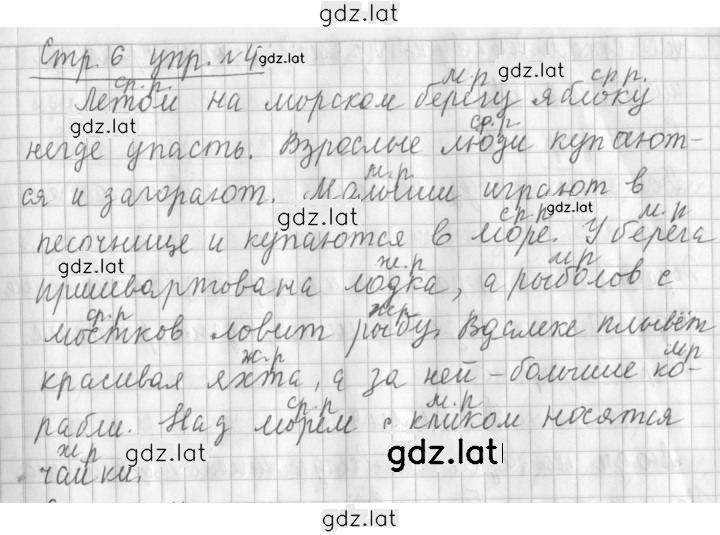 gdz.lat
Стр. 6 упр. №4 gdz.lat
ср.р. м.р gdz.lat ср р.
Летом на морском берегу яблоку
gdz.lat ср.р
негде упасть. Взрослые люди купают-
м.р.
ся и загорают. Малыши играют в
gdz.lat ср.р gdz.lat м.р
песочнице и купаются в море. У берега
gdz.lat ж.р м р
пришвартована лодка, а рыболов с
ср.р ж.р
мостков ловит рыбу. Вдалеке плывёт
ж.р м р
красивая яхта, а за ней - большие ко-
ср.р м.р
рабли. Над морем с криком носятся
ж.р gdz.lat gdz.lat
чайки.
gdz.lat